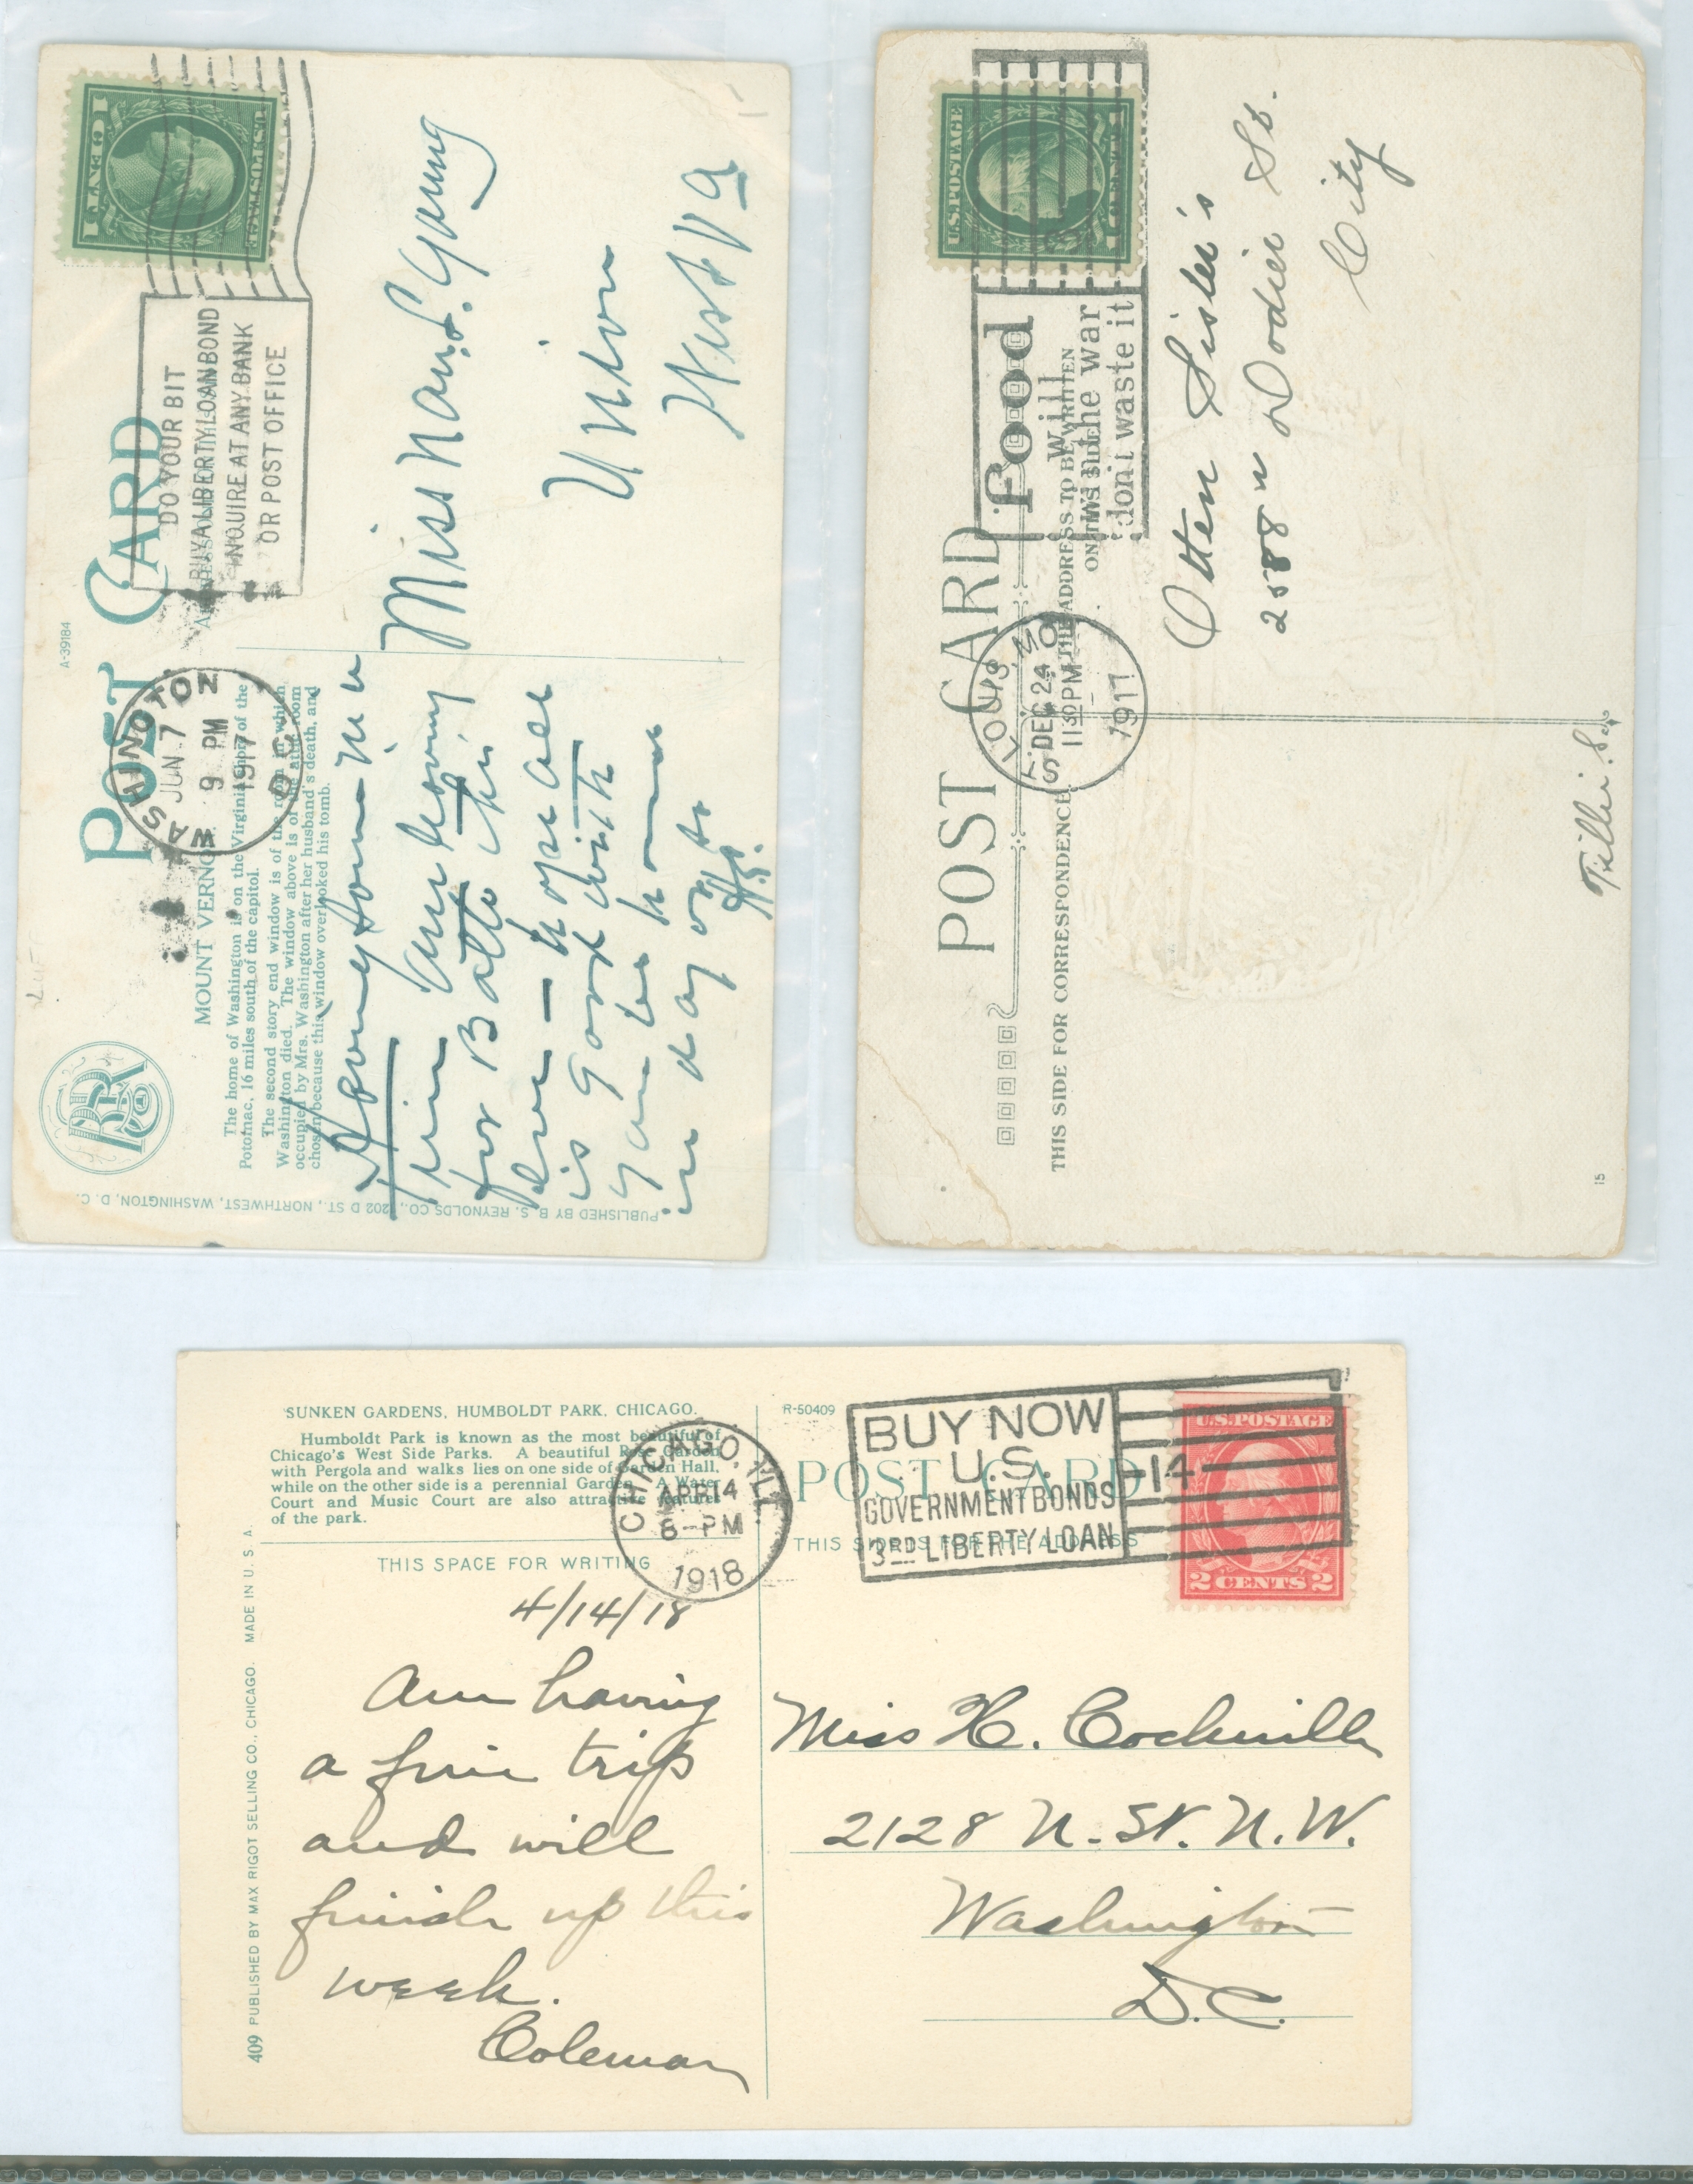 A-39184
POST CARD
WASHINGTON
JUN 7
9 PM
1917
D.C.
DO YOUR BIT
BUY A LIBERTY LOAN BOND
INQUIRE AT ANY BANK
OR POST OFFICE
ONE CENT
U.S. POSTAGE
MOUNT VERNON
The home of Washington is on the Virginia shore of the
Potomac, 16 miles south of the capitol.
The second story end window is of the room in which
Washington died. The window above is of the attic room
occupied by Mrs. Washington after her husband's death, and
chosen because this window overlooked his tomb.
PUBLISHED BY B. S. REYNOLDS CO., 202 D ST., NORTHWEST, WASHINGTON, D. C.
leaving
for Balto this
hope all
is good with
you be home
in day or so
Miss Nan. L. Young
Union
West Va
POST CARD
U.S. POSTAGE
ST. LOUIS, MO.
DEC 24
11 30 PM
1917
food
will
win the war
don't waste it
THIS SIDE FOR CORRESPONDENCE.
THE ADDRESS TO BE WRITTEN
ON THIS SIDE
Otten Sister's
2588 N Dodier St.
City
Tillie S.
15
SUNKEN GARDENS, HUMBOLDT PARK, CHICAGO.
Humboldt Park is known as the most beautiful of
Chicago's West Side Parks. A beautiful Rose Garden
with Pergola and walks lies on one side of Garden Hall,
while on the other side is a perennial Garden. A Water
Court and Music Court are also attractive features
of the park.
R-50409
POST CARD
CHICAGO, ILL.
APR 14
8-PM
1918
BUY NOW
U.S.
GOVERNMENT BONDS
3RD LIBERTY LOAN
14
U.S. POSTAGE
2 CENTS 2
THIS SPACE FOR WRITING
THIS SIDE IS FOR THE ADDRESS
4/14/18
Am having
a fine trip
and will
finish up this
week.
Coleman
Miss H. Cockerille
2128 N. St. N.W.
Washington
D.C.
409 PUBLISHED BY MAX RIGOT SELLING CO., CHICAGO. MADE IN U. S. A.